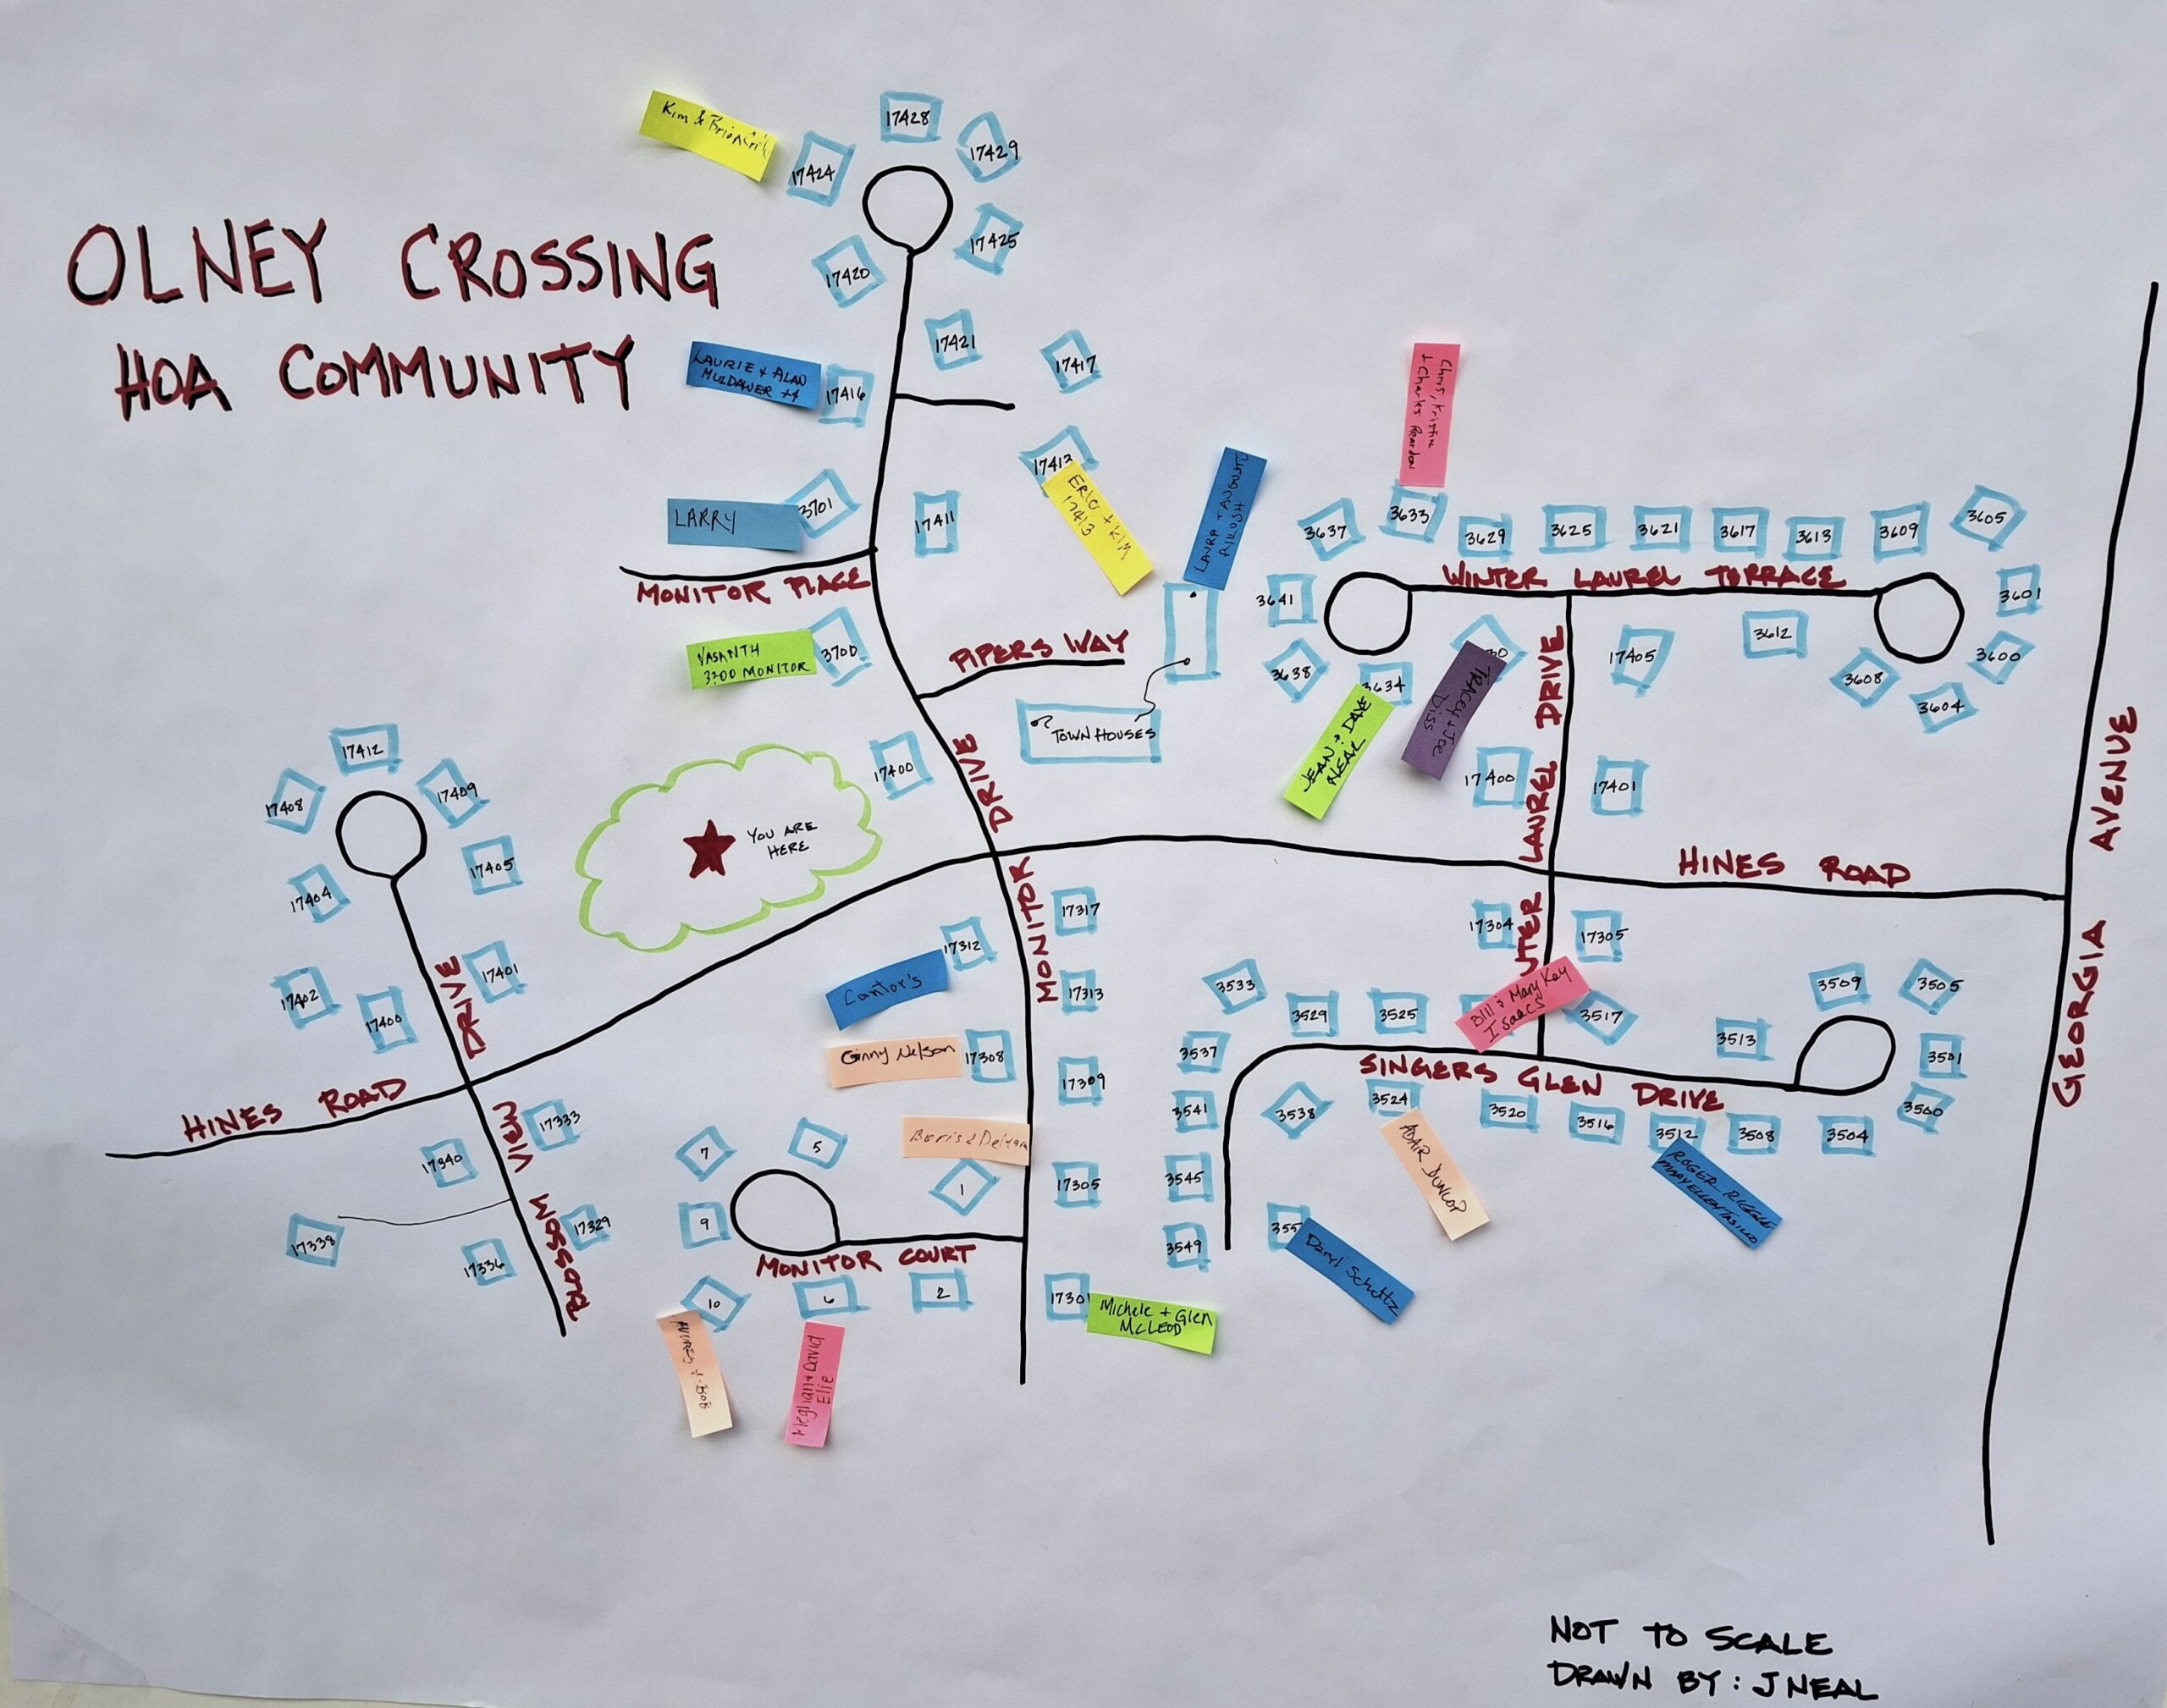 OLNEY CROSSING
HOA COMMUNITY
Kim & Brian
17424
17428
17429
17425
17420
17421
17417
LAURIE + ALAN
MULDAWER +4
17416
17413
ERIC + KIM
17413
LARRY
3701
17411
MONITOR PLACE
VASANTH
3700 MONITOR
3700
PIPERS WAY
TOWN HOUSES
LAURA +
17400
DRIVE
MONITOR
YOU ARE
HERE
Chris, Kristin
+ Charles Reardon
3637
3633
3629
3625
3621
3617
3613
3609
3605
3601
3600
3604
3608
3612
3641
3638
3634
WINTER LAUREL TERRACE
JEAN + DAVE
NEAL
TRACEY + Joe
Diss
17405
17400
17401
LAUREL DRIVE
HINES ROAD
GEORGIA AVENUE
17412
17408
17409
17405
17404
17402
17400
17401
DRIVE
VIEW
BLOSSOM
HINES ROAD
17333
17340
17338
17336
17329
17317
17312
Cantor's
17313
Ginny Nelson
17308
17309
Boris &
1
17305
7
5
9
MONITOR COURT
10
6
2
17301
Michele + Glen
McLEOD
& Bob
Meghan + David
Elie
17304
17305
Bill & Mary Kay
Isaacs
3533
3529
3525
3517
3513
3509
3505
3501
3500
3537
3541
3545
3549
SINGERS GLEN DRIVE
3538
3524
3520
3516
3512
3508
3504
ADAIR DUNLOP
ROGER
355
Daryl Schultz
NOT TO SCALE
DRAWN BY: J NEAL